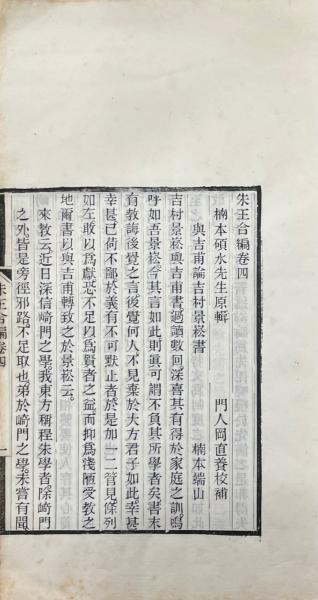 朱王合編卷四
楠本碩水先生原輯　門人岡直養校補
與吉甫論吉村景崧書　楠本端山
吉村景崧與吉甫書過讀數回深喜其有得於家庭之訓嗚
呼如吾景崧今其言如此則眞可謂不負其所學者矣書末
有教誨後覺之言後覺何人不見棄於大方君子如此幸甚
幸甚已荷不鄙於義有不可默止者於是加一二管見條列
如左敢以爲獻恐不足以爲賢者之益而抑爲淺陋受教之
地爾書以與吉甫轉致之於景崧云
來教云近日深信崎門之學我東方稱程朱學者除崎門
之外皆是旁徑邪路不足取也弟於崎門之學未嘗有聞
朱王合編卷四
一